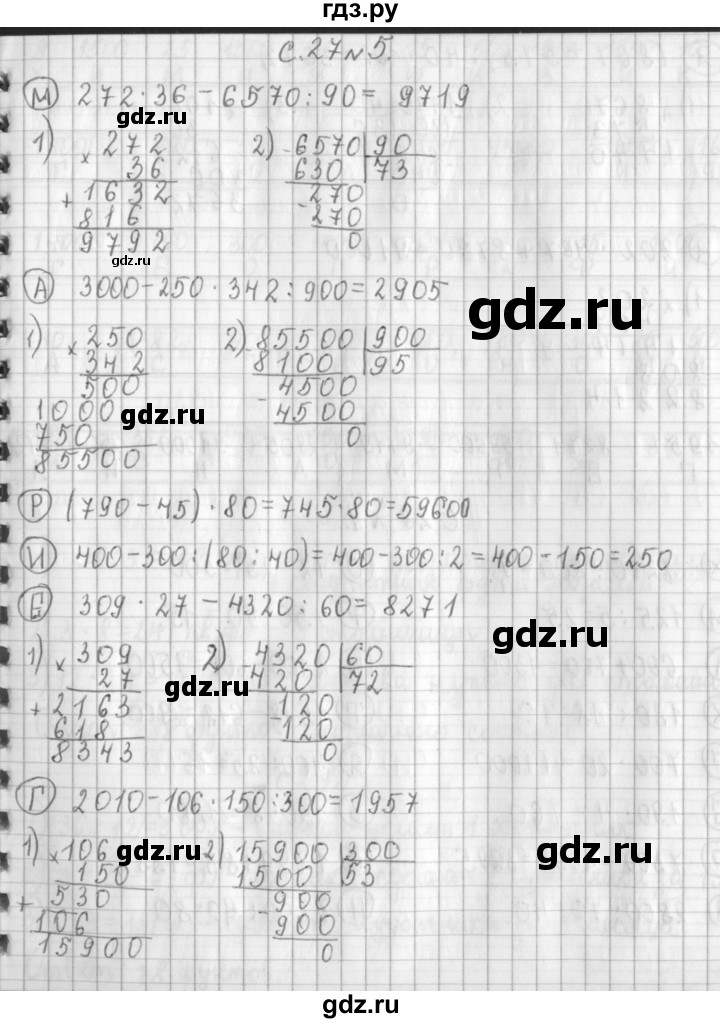 гдз.ру
с. 27 № 5.
М 272 · 36 - 6570 : 90 = 9719
gdz.ru
1) × 272
36
+ 1632
816
9792
gdz.ru
2) - 6570 90
630 73
270
- 270
0
А 3000 - 250 · 342 : 900 = 2905
gdz.ru
1) × 250
342
500
1000
gdz.ru
750
85500
2) - 85500 900
8100 95
4500
- 4500
0
Р (790 - 45) · 80 = 745 · 80 = 59600
И 400 - 300 : (80 : 40) = 400 - 300 : 2 = 400 - 150 = 250
Е 309 · 27 - 4320 : 60 = 8271
gdz.ru
1) × 309
27
+ 2163
618
8343
gdz.ru
2) - 4320 60
420 72
120
- 120
0
Г 2010 - 106 · 150 : 300 = 1957
1) × 106
150
+ 530
106
15900
gdz.ru
2) 15900 300
1500 53
900
- 900
0
gdz.ru
gdz.ru